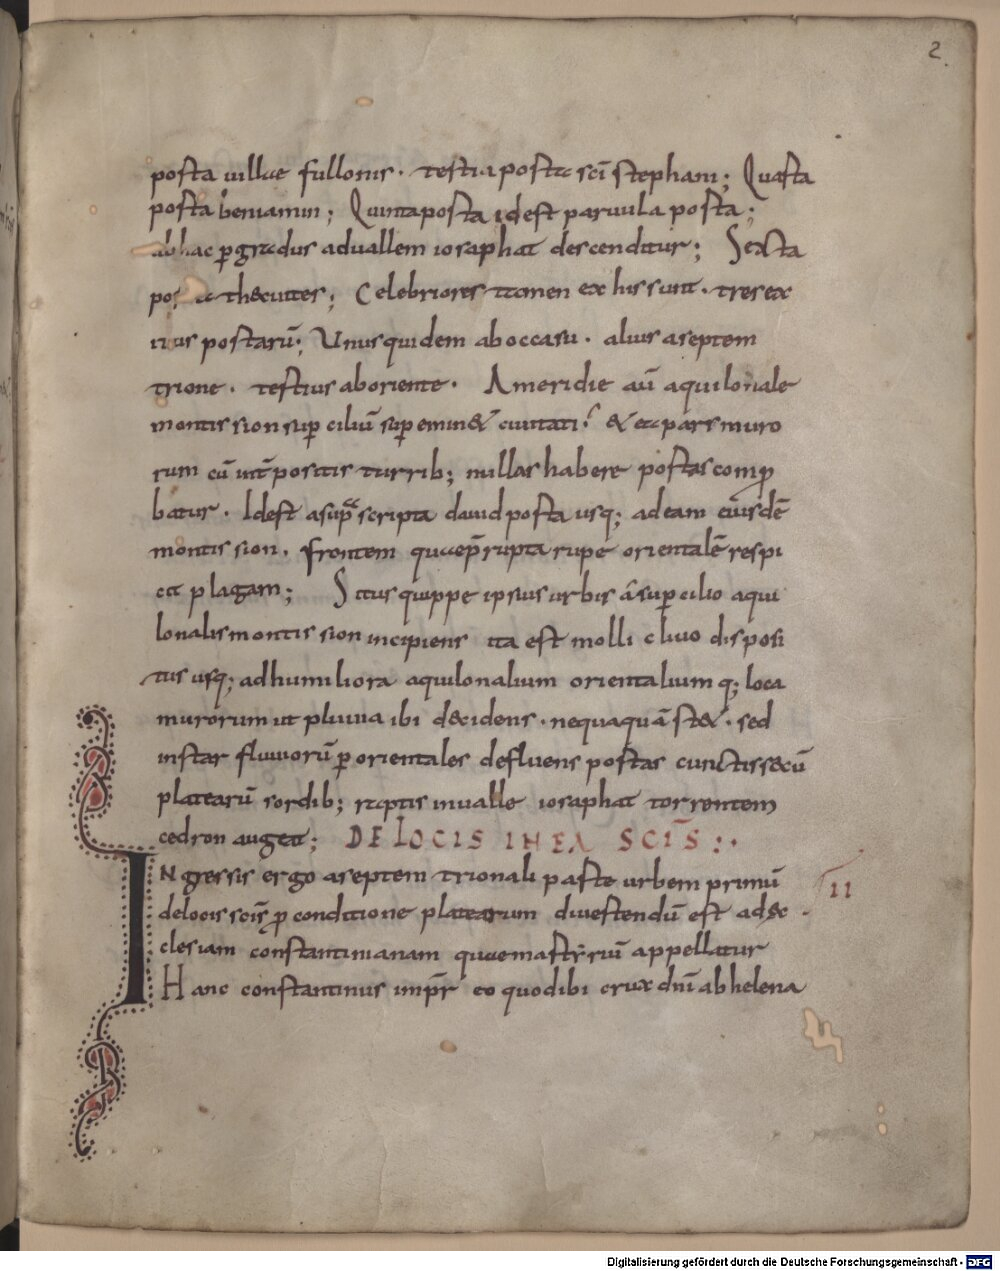 2.
porta uillae fullonis· tertia porta sci̅ stephani; Quarta
porta beniamin; Quinta porta idest paruula porta;
ab hac p̲ gradus ad uallem iosaphat descenditur; Sexta
porta thecuites; Celebriores tamen ex his sunt· tres ex
itus portaru̅; Unus quidem ab occasu· alius a septem
trione· tertius ab oriente· A meridie au̅ aquilonale
montis sion sup̲ciliu̅ sup̲emin& ciuitati; & ea pars muro
rum cu̅ int̅positis turrib; nullas habere portas comp̲
batur· Idest a sup̲ascripta dauid porta usq; ad eam eiusde̅
montis sion· frontem quae p̅rupta rupe orientale̅ respi
cit plagam; Situs quippe ipsius urbis a̅ sup̲cilio aqui
lonalis montis sion incipiens ita est molli cliuo disposi
tus usq; ad humiliora aquilonalium orientaliumq; loca
murorum ut pluuia ibi decidens· nequaqua̅ st&· sed
instar fluuioru̅ p̲ orientales defluens portas cunctis secu̅
platearu̅ sordib; raptis in ualle iosaphat torrentem
cedron augeat; DE LOCIS IN EA SCI̅S:·
INgressis ergo a septemtrionali parte urbem primu̅
de locis sci̅s p̲ conditione platearum diuertendu̅ est ad &c·
clesiam constantinianam quae martyriu̅ appellatur
Hanc constantinus imp̅r eo quod ibi crux dni̅ ab helena
II
Digitalisierung gefördert durch die Deutsche Forschungsgemeinschaft - DFG